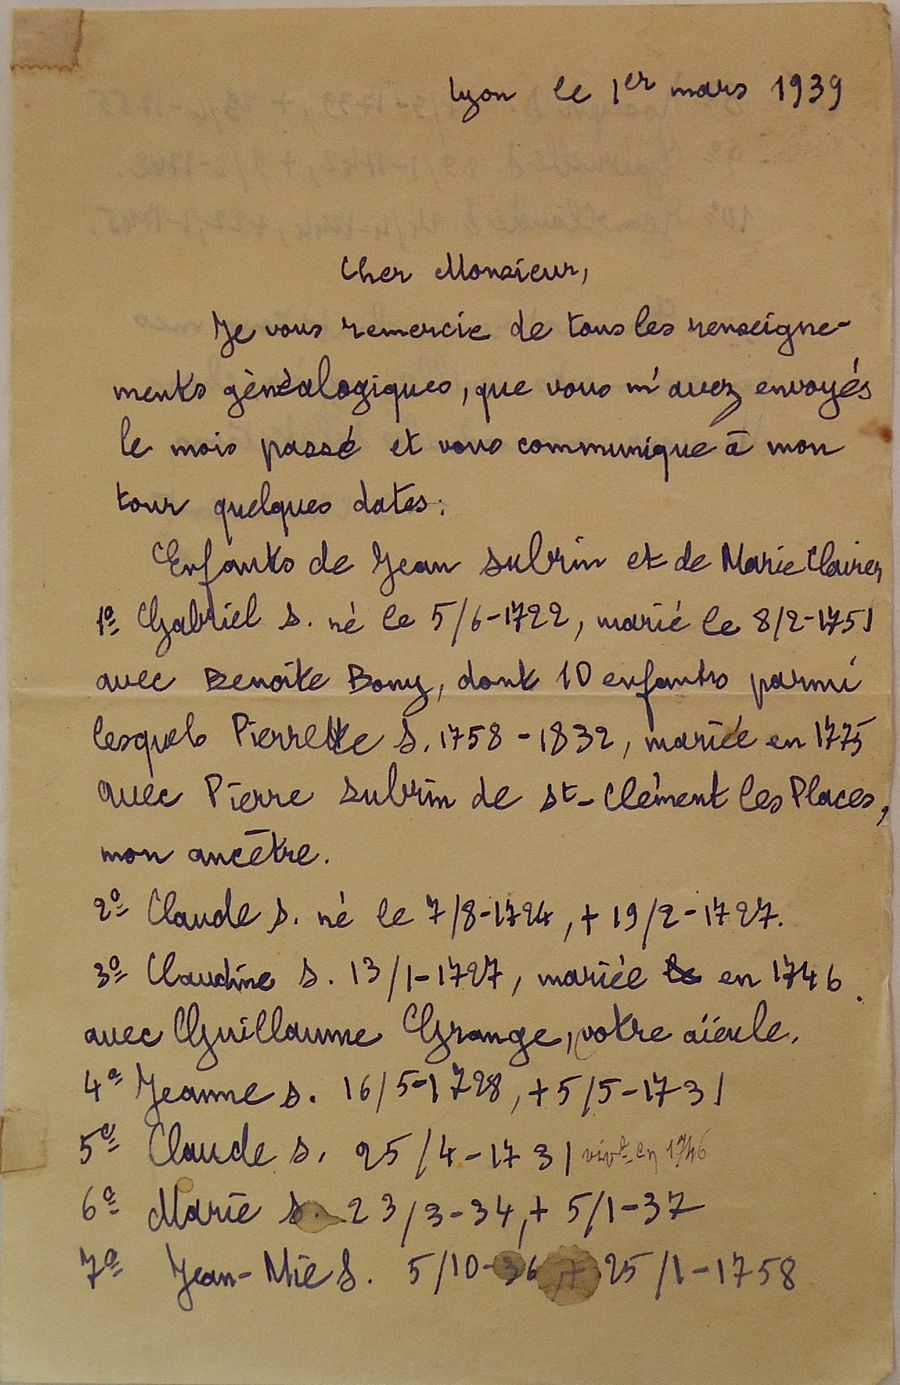 Lyon le 1er mars 1939
Cher Monsieur,
Je vous remercie de tous les renseigne-
ments généalogiques, que vous m'avez envoyés
le mois passé et vous communique à mon
tour quelques dates:
Enfants de Jean Subrin et de Marie Clairer
1º Gabriel S. né le 5/6-1722, marié le 8/2-1751
avec Benoîte Bony, dont 10 enfants parmi
lesquels Pierrette S. 1758-1832, mariée en 1775
avec Pierre Subrin de St-Clément les Places,
mon ancêtre.
2º Claude S. né le 7/8-1724, + 19/2-1727.
3º Claudine S. 13/1-1727, mariée en 1746
avec Guillaume Grange, votre aïeule.
4º Jeanne S. 16/5-1728, + 5/5-1731
5º Claude S. 25/4-1731 vivt en 1746
6º Marie S. 23/3-34, + 5/1-37
7º Jean-Mie S. 5/10-36, + 25/1-1758